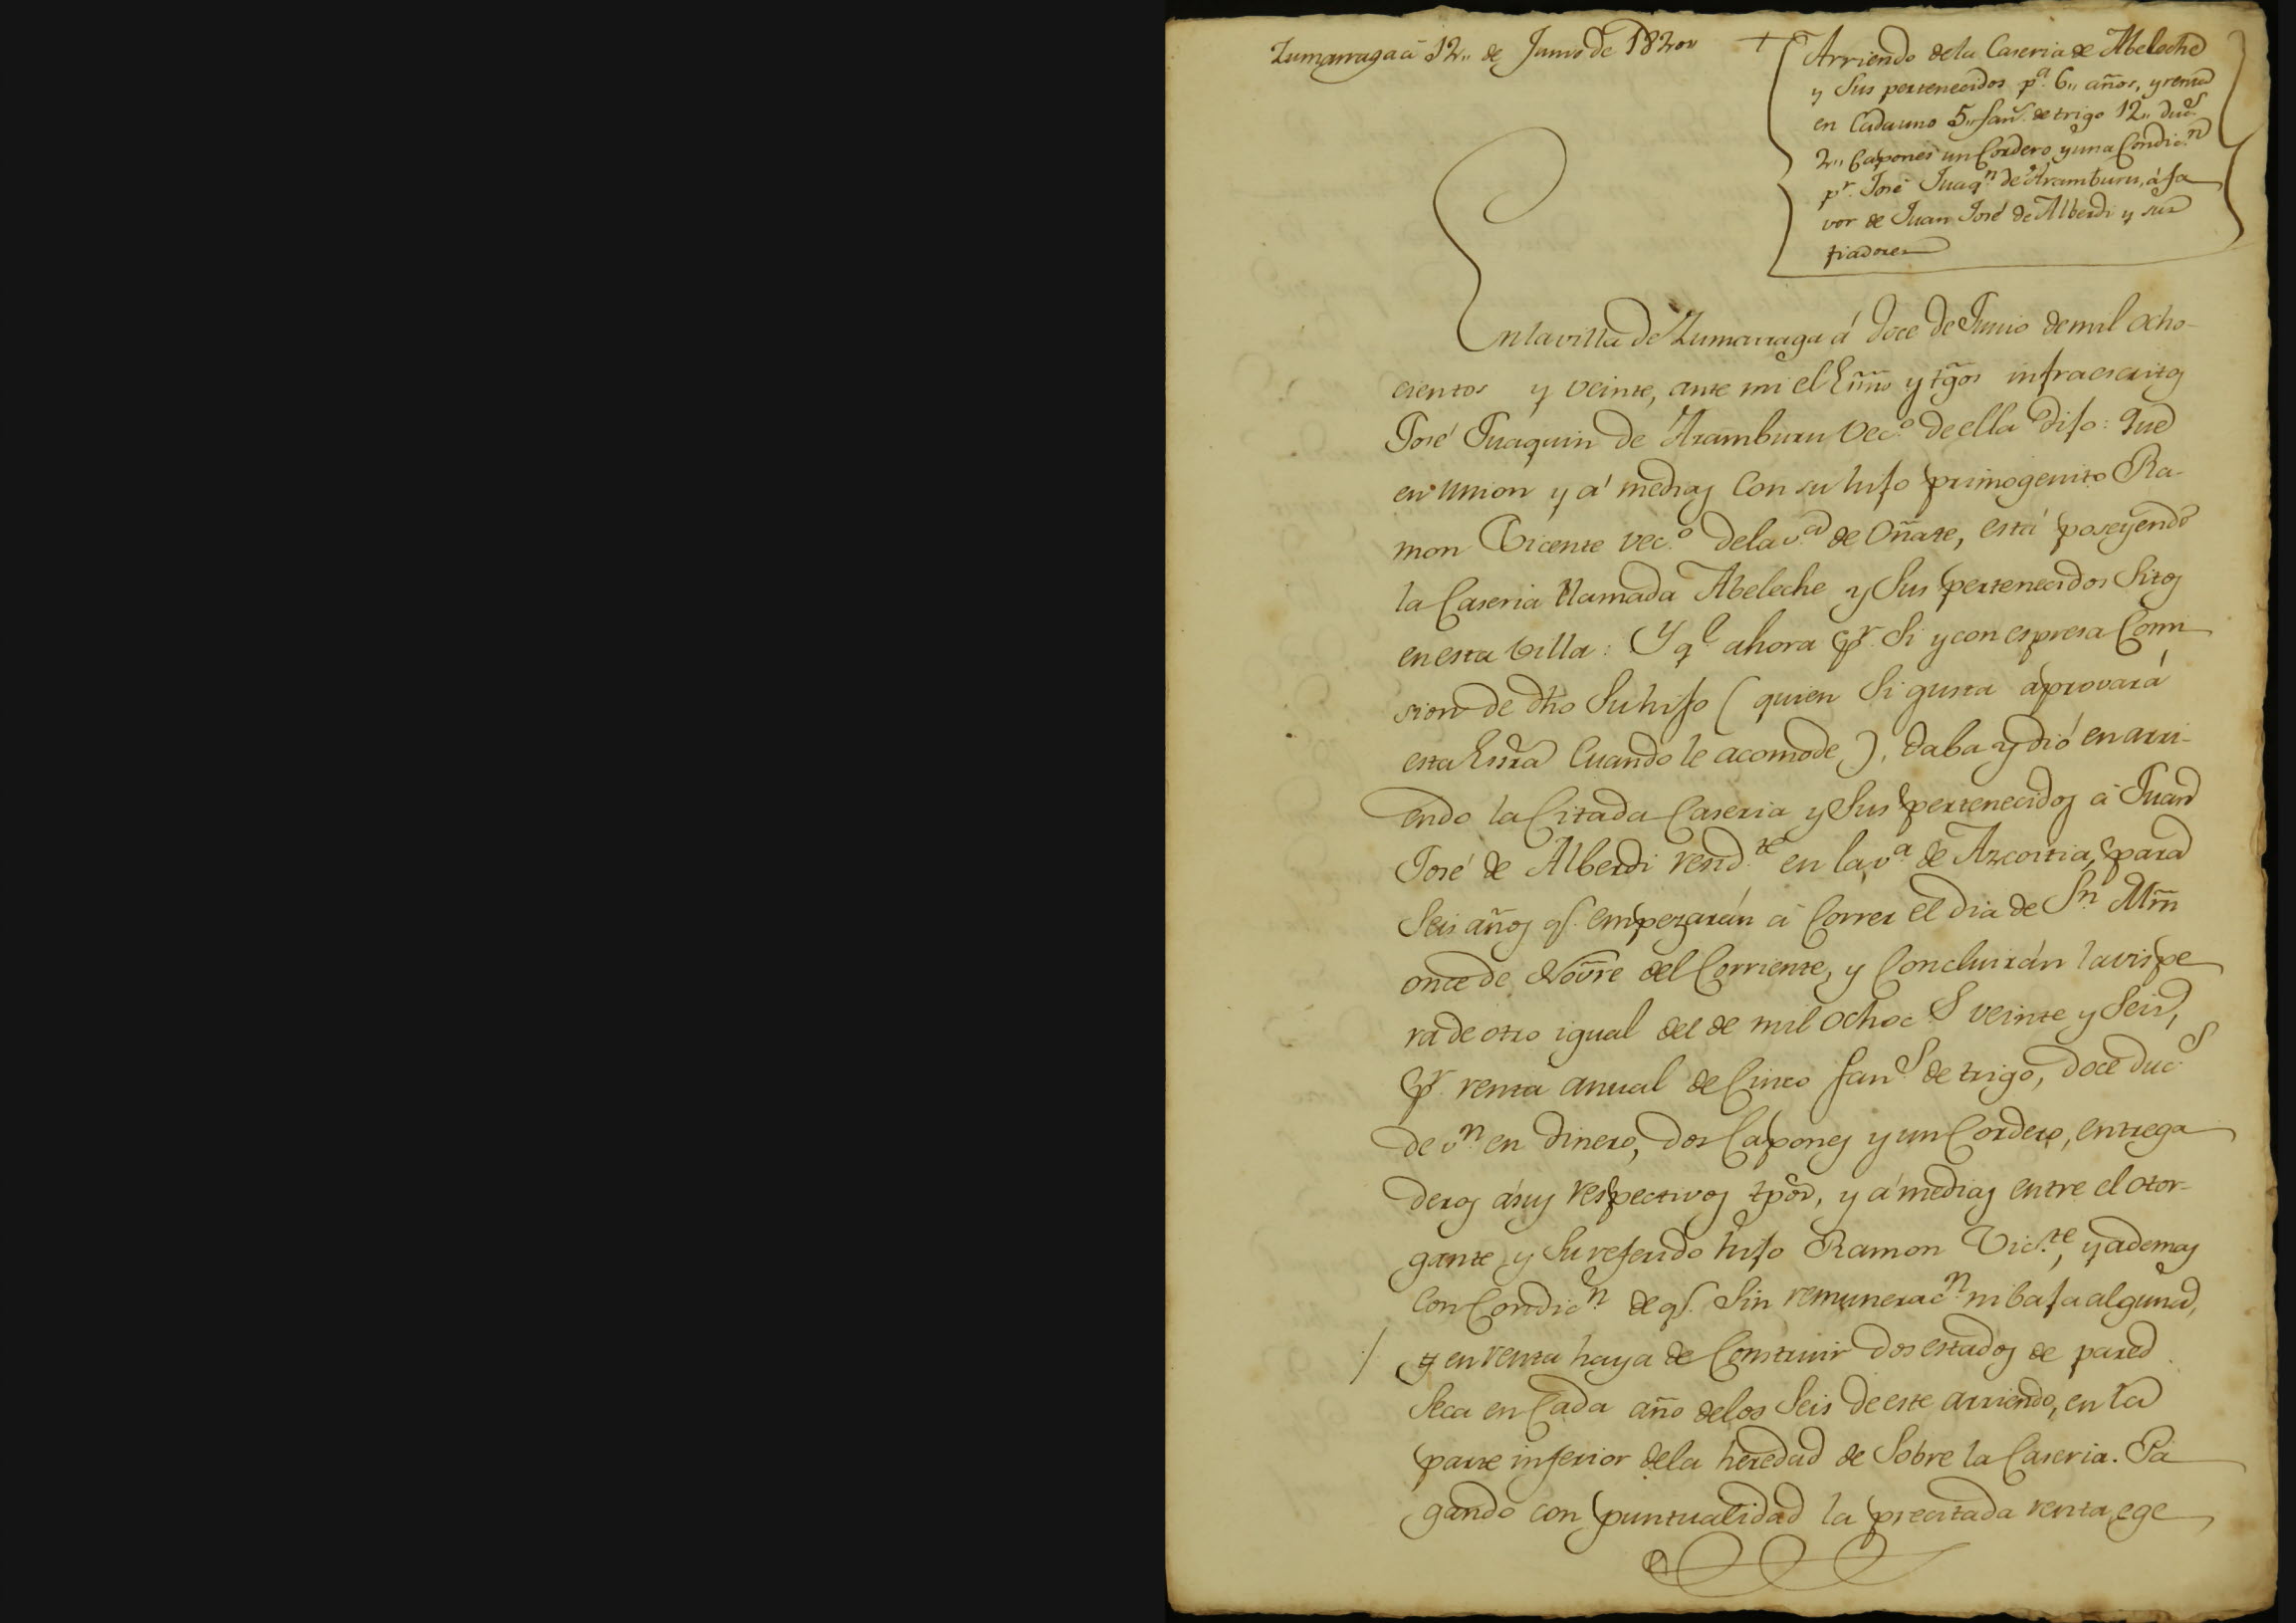 Zumarraga á 12,, de Junio de 1820,,
+
Arriendo dela Caseria de Abeleche
y Sus pertenecidos p.ª 6,, años, y renta
en Cada uno 5,, fan.s de trigo 12,, duc.s
2,, Capones un Cordero, y una Condic.n
p.r José Juaq.n de Aramburu, á fa
vor de Juan José de Alberdi y sus
fiadores
En la villa de Zumarraga á doce de Junio de mil ocho-
cientos y veinte, ante mi el Essno y tgos infraescritos
José Juaquin de Aramburu vec.º de ella dijo: Que
en union y á medias con su hijo primogenito Ra-
mon Vicente vec.º dela v.ª de Oñate, está poseyendo
la Caseria llamada Abeleche y Sus pertenecidos Sitos
en esta villa: Y q.e ahora p.r Si y con espresa Comi
sion de dho Su hijo (quien Si gusta aprovará
esta Essra Cuando le acomode), daba y dió en arri-
endo la Citada Caseria y Sus pertenecidos á Juan
José de Alberdi resid.te en la v.ª de Azcoitia, para
Seis años q.e empezarán á Correr el dia de S.n Mrn
once de Novre del Corriente, y Concluirán la vispe
ra de otro igual del de mil ochoc.s veinte y Seis,
p.r renta anual de Cinco fan.s de trigo, doce duc.s
de v.n en dinero, dos Capones y un Cordero, entrega
deros á sus respectivos tpos, y á medias entre el otor-
gante y Su referido hijo Ramon Vic.te, y ademas
Con Condic.n de q.e Sin remunerac.n ni baja alguna,
/ en renta haya de Construir dos estados de pared
Seca en Cada año delos Seis de este arriendo, en la
parte inferior dela heredad de Sobre la Caseria. Pa
gando con puntualidad la precitada renta, ege